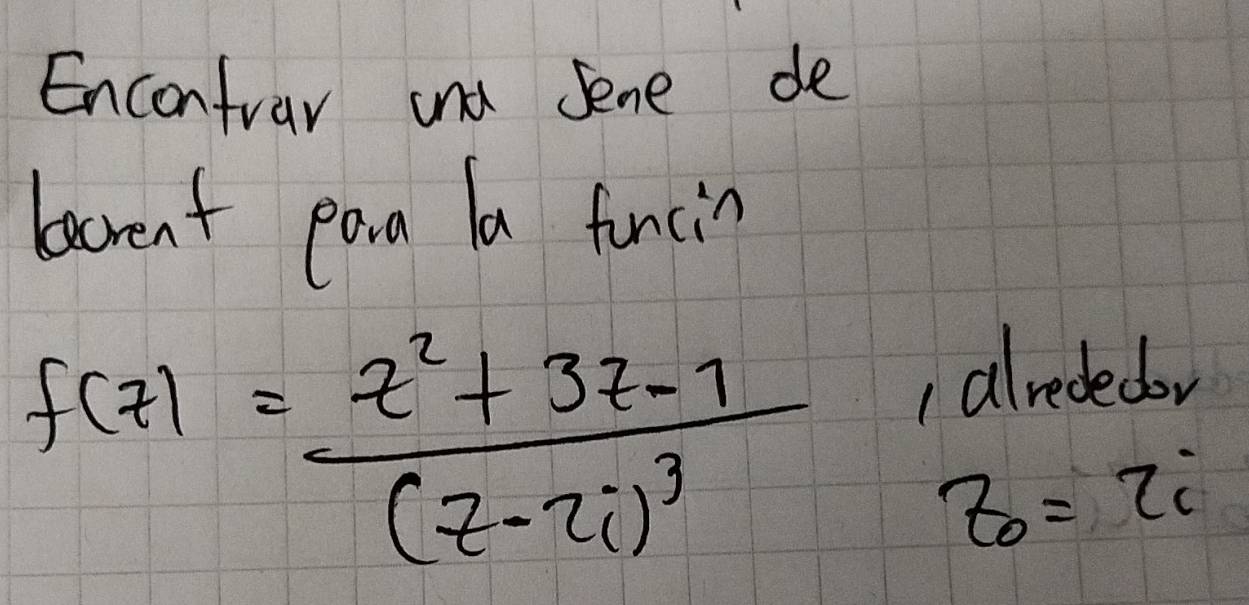 Encontrar una serie de
Laurent para la función
f(z) = z² + 3z - 1 / (z - 2i)³ , alrededor
z₀ = 2i